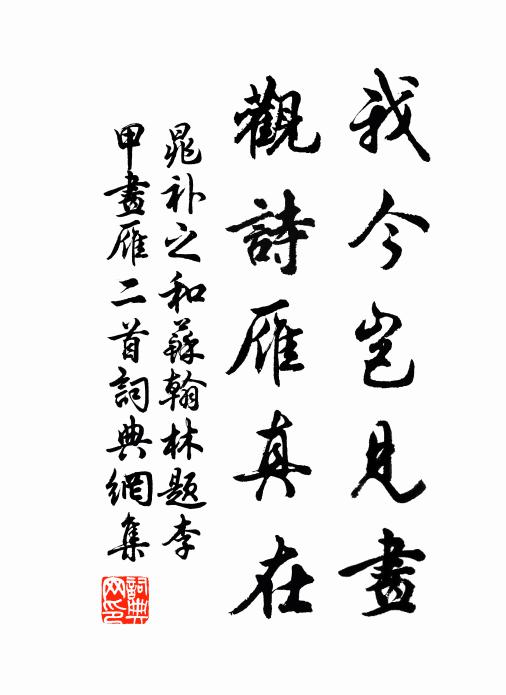 我今岂見畫
觀詩雁真在
晁补之和蘇翰林題李
甲畫雁二首詞典網集
詞典
网印